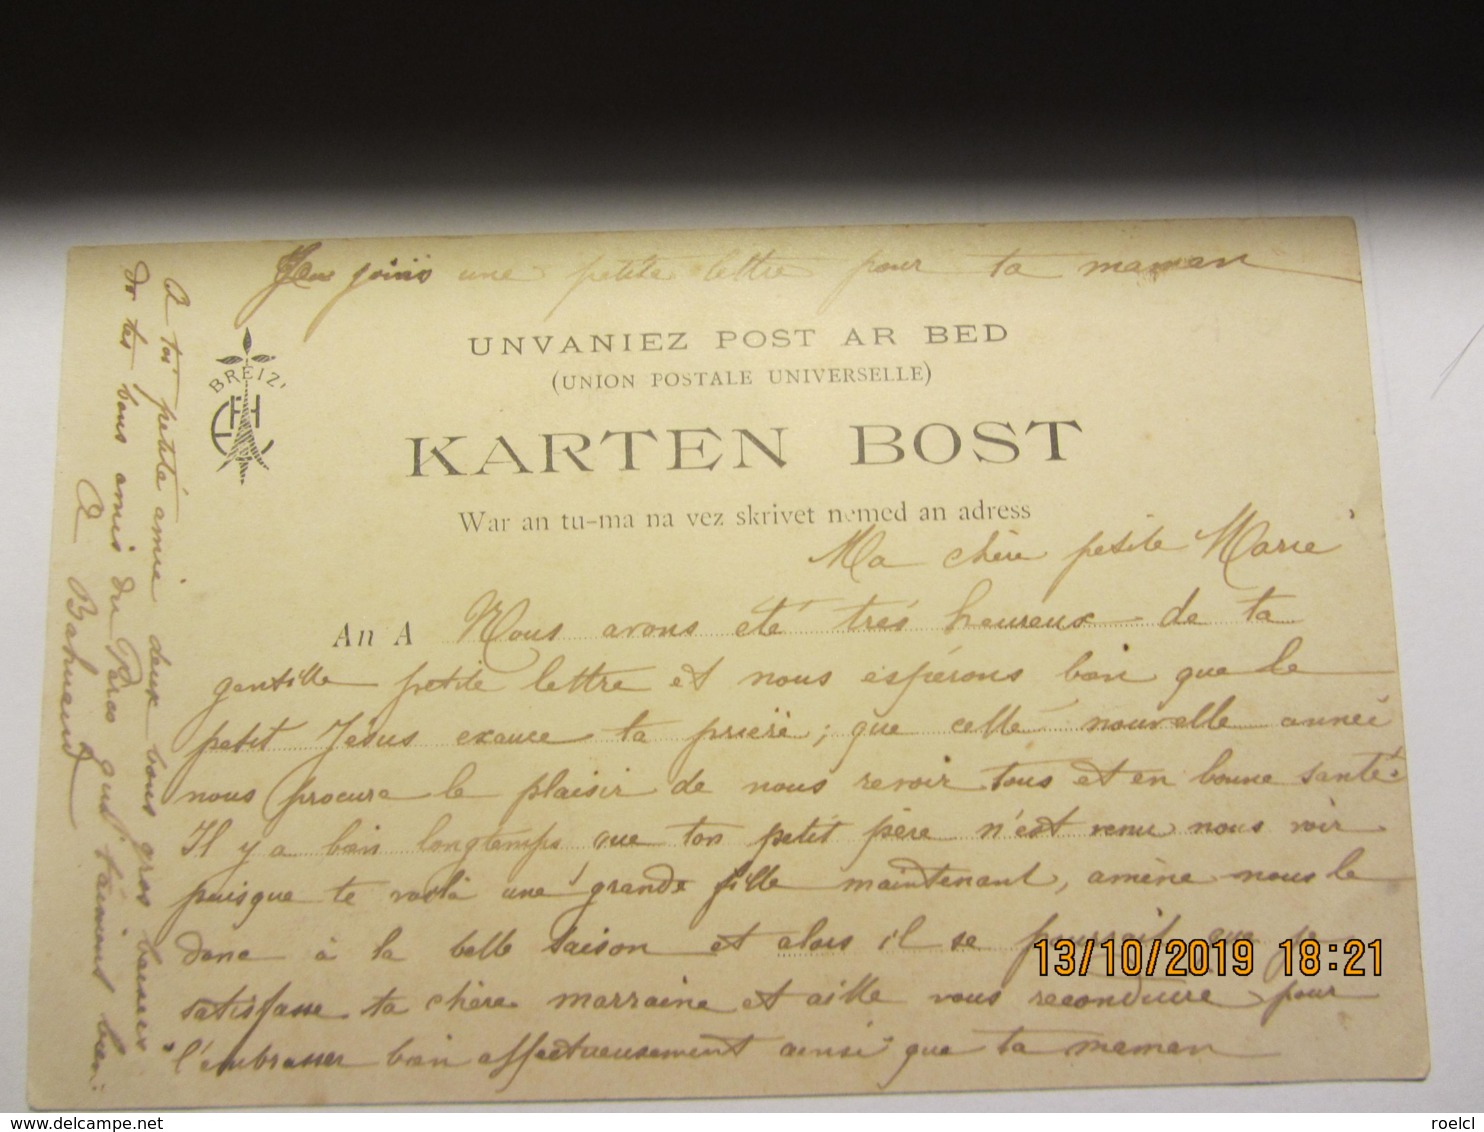 J'en joins une petite lettre pour ta maman
UNVANIEZ POST AR BED
(UNION POSTALE UNIVERSELLE)
BREIZ
KARTEN BOST
War an tu-ma na vez skrivet nemed an adress
Ma chère petite Marie
An A Nous avons été très heureux de ta
gentille petite lettre et nous espérons bien que le
petit Jésus exauce ta prière; que cette nouvelle année
nous procure le plaisir de nous revoir tous et en bonne santé.
Il y a bien longtemps que ton petit père n'est venu nous voir
puisque te voilà une grande fille maintenant, amène nous le
donc à la belle saison et alors il se pourrait que je
satisfasse ta chère marraine et aille vous reconduire pour
l'embrasser bien affectueusement ainsi que ta maman
A toi petite amie deux bons gros baisers
de tes bons amis du qui t'aiment bien.
A Bahuaud
13/10/2019 18:21
https://www.delcampe.net
roelcl